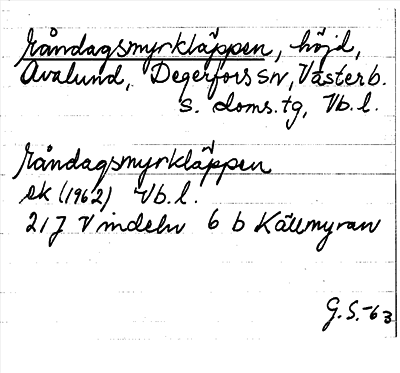 Råndagsmyrkläppen, höjd,
Avalund, Degerfors sn, Västerb.
s. doms.tg, Vb.l.
Råndagsmyrkläppen
ek (1962) Vb.l.
21J Vindeln 6 b Kallmyran
G.S.-63